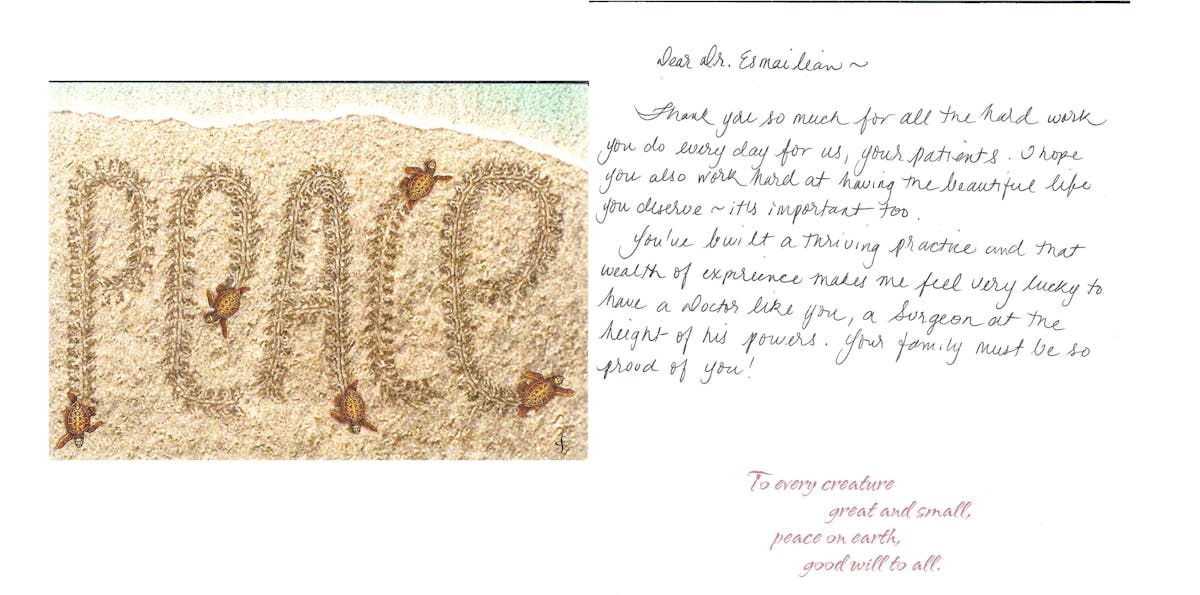 PEACE
Dear Dr. Esmailian ~
Thank you so much for all the hard work
you do every day for us, your patients. I hope
you also work hard at having the beautiful life
you deserve ~ it's important too.
You've built a thriving practice and that
wealth of exprience makes me feel very lucky to
have a Doctor like you, a Surgeon at the
height of his powers. Your family must be so
proud of you!
To every creature
great and small,
peace on earth,
good will to all.